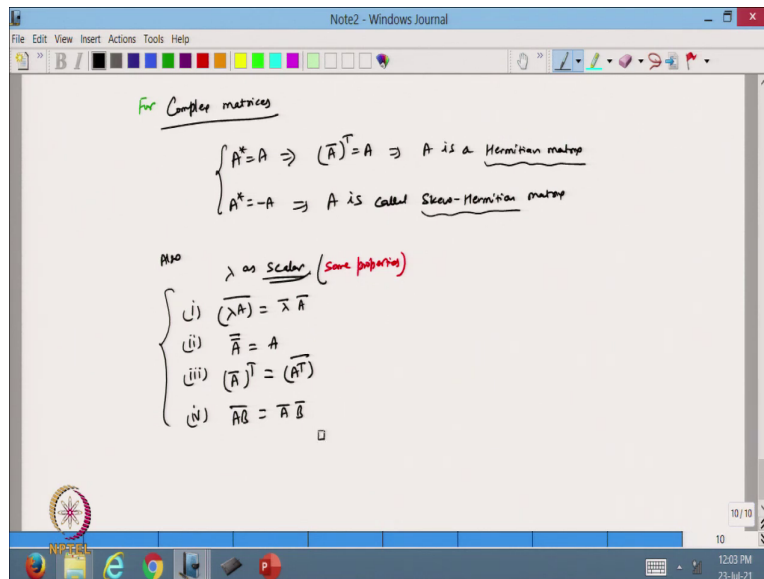 Note2 - Windows Journal
File Edit View Insert Actions Tools Help
B I
For Complex matrices
A* = A ⇒ (A̅)ᵀ = A ⇒ A is a Hermitian matrix
A* = -A ⇒ A is called Skew-Hermitian matrix
Also
λ as scalar (some properties)
(i) \overline{(λA)} = \overline{λ} \overline{A}
(ii) \overline{\overline{A}} = A
(iii) (\overline{A})ᵀ = \overline{(Aᵀ)}
(iv) \overline{AB} = \overline{A} \overline{B}
10/10
10
NPTEL
12:03 PM
23-Jul-21